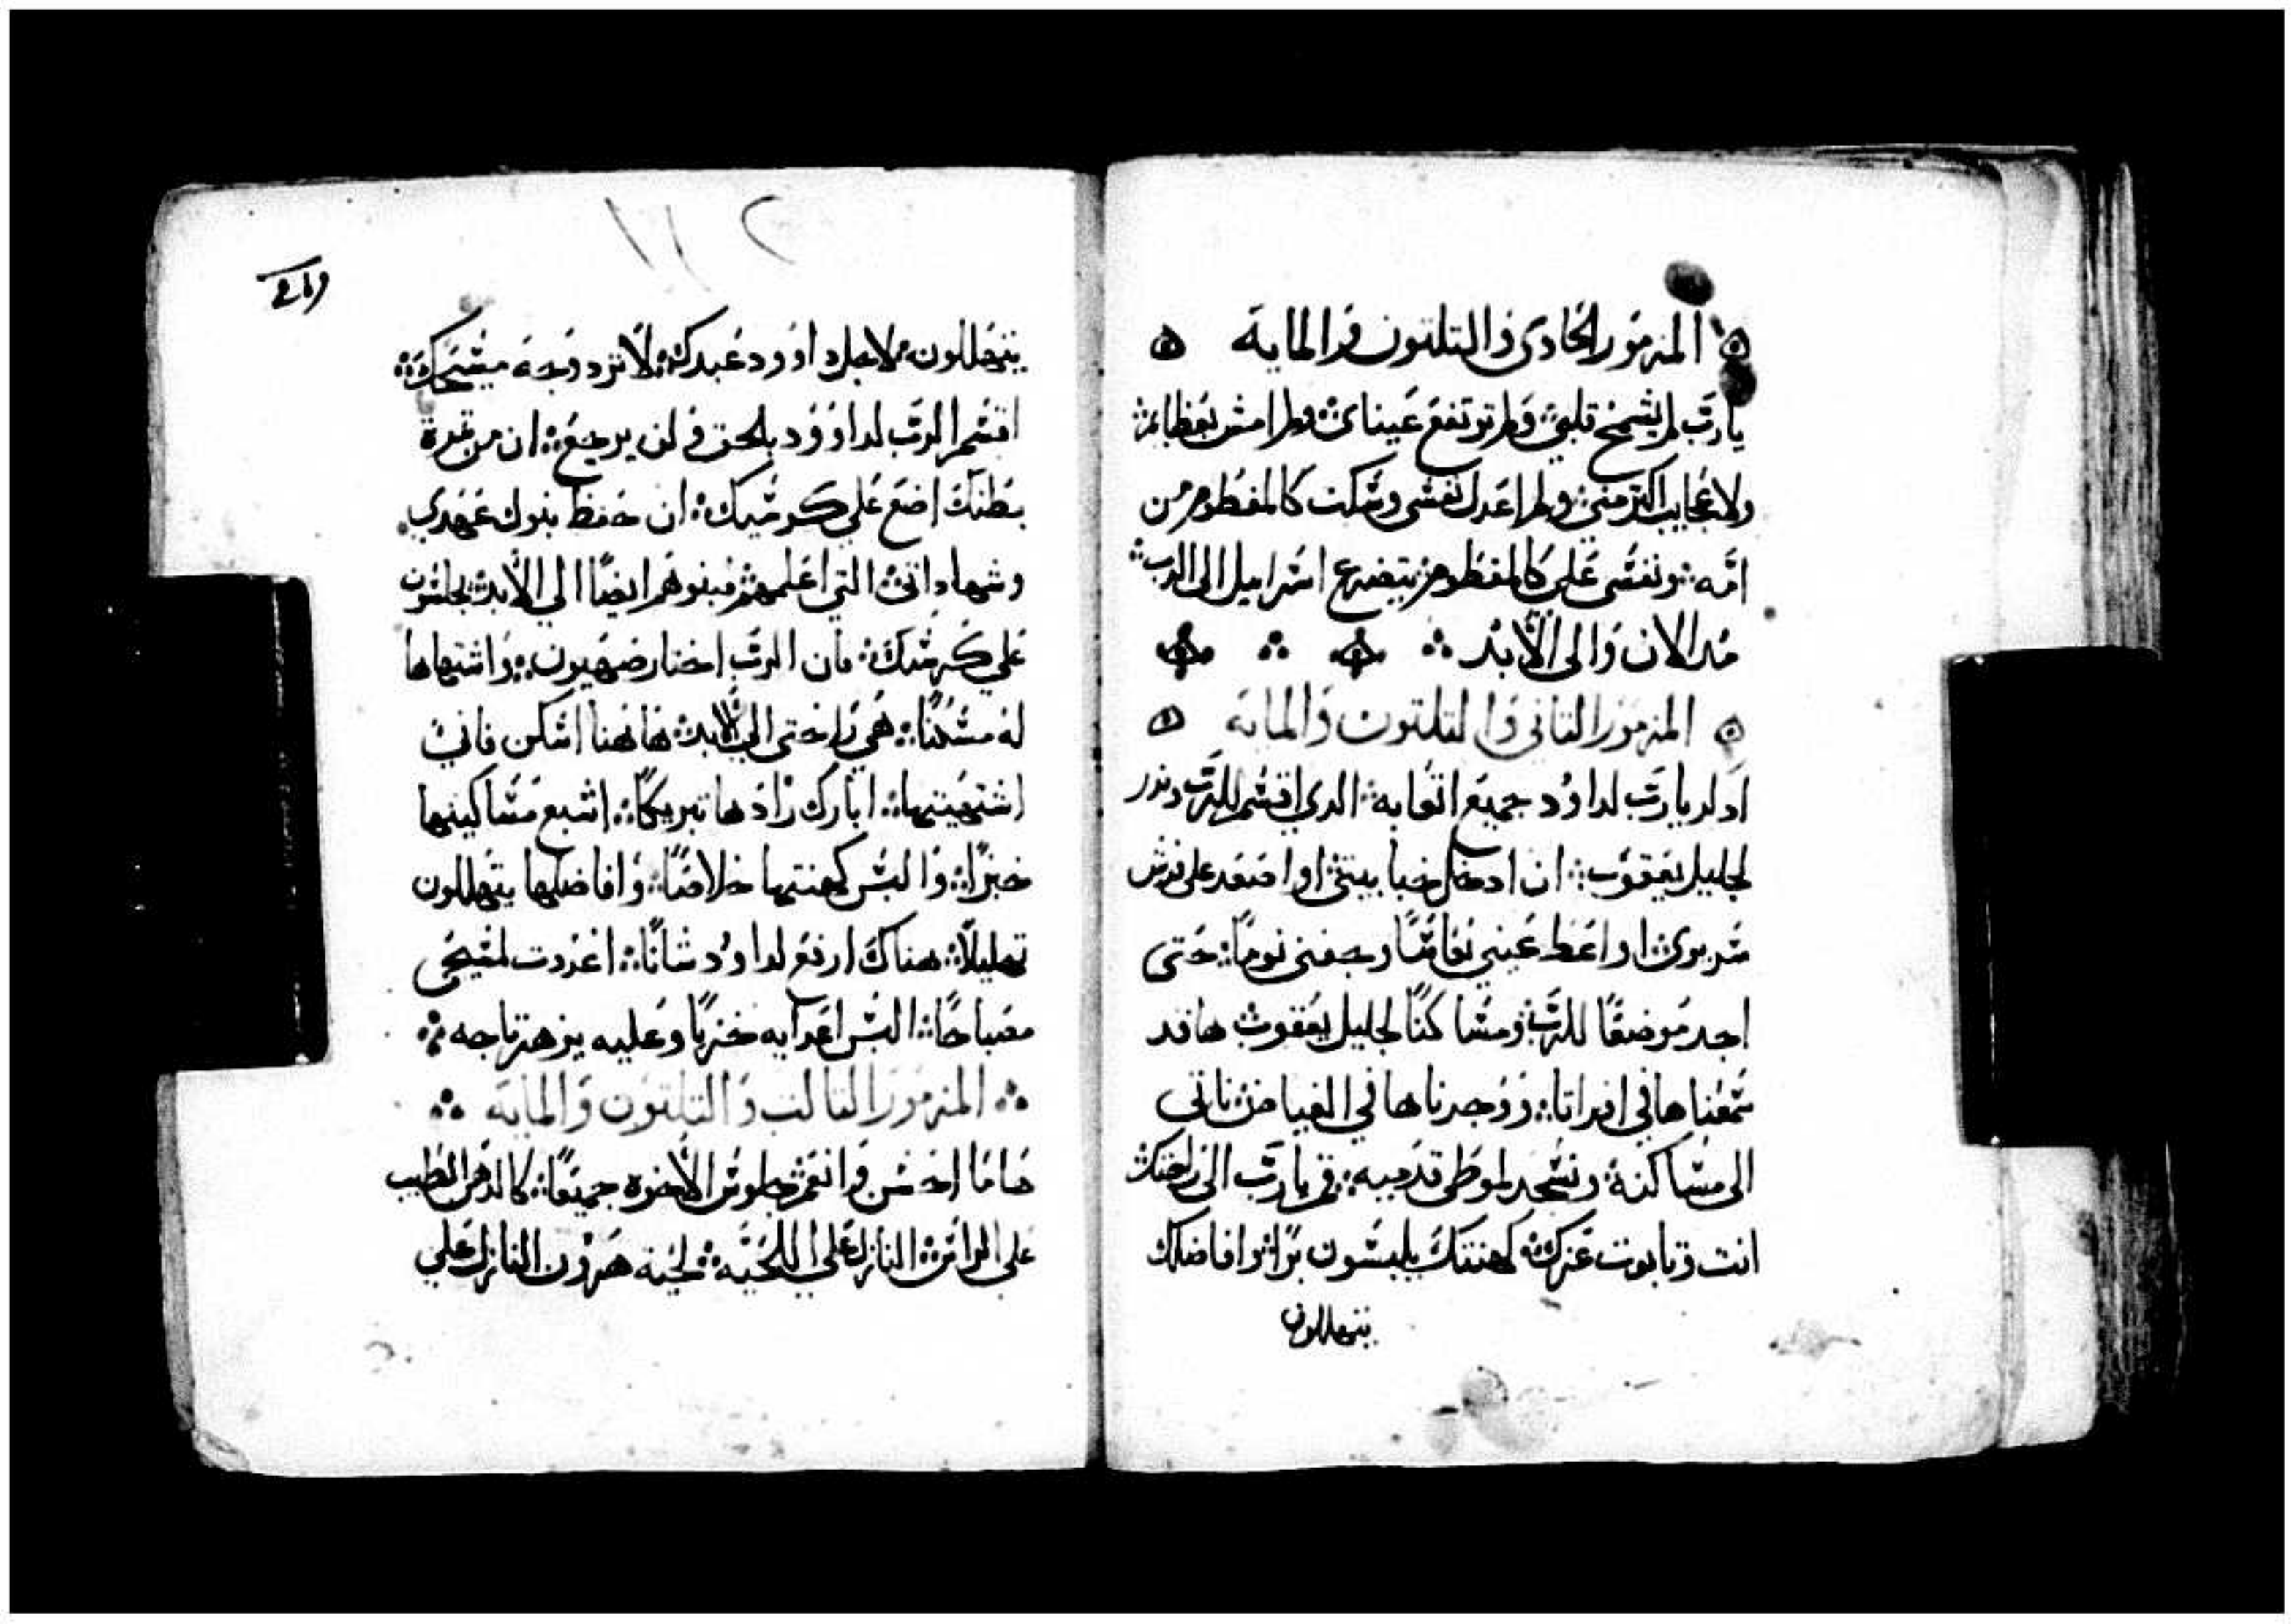 المزمور الحادي والتلتون والمايه
يارب لم يشمخ قلبي ولم ترتفع عيناي ولم امش بعظايم
ولا بعجايب اكتر مني ولم اعدل نفسي وسكت كالمفطوم من
امه ونفسي علي كالمفطوم يتضرع اسراييل الى الرب
مند الان والى الأبد
المزمور التاني والتلتون والمايه
ادكر يارب لداود جميع اتعابه الدي اقسم للرب وندر
لجليل يعقوب ان ادخل خبا بيتي او اصعد على فرش
سريري او اعط عيني نعاسًا وجفني نومًا حتى
اجد موضعًا للرب ومساكنًا لجليل يعقوب ها قد
سمعنا ها في افراتا ووجدناها في الغياض ناتي
الى مساكنه ونسجد لموطى قدميه قم يارب الى راحتك
انت وتابوت عزك كهنتك يلبسون برًا وافاضلك
يتهللون
يتهللون لاجل داوود عبدك لا ترد وجه مسيحك
اقسم الرب لداوود بالحق ولن يرجع ان من تمرة
بطنك اضع علي كرسيك ان حفظ بنوك عهدي
وشهاداتي التي اعلمهم فبنوهم ايضًا الي الأبد يجلسون
علي كرسيك فان الرب اختار صهيون واشتهاها
له مسكنًا هي راحتي الى الأبد هاهنا اسكن فاني
اشتهيتها ابارك زادها تبريكًا اشبع مساكينها
خبزًا والبس كهنتها خلاصًا وافاضلها يتهللون
تهليلاً هناك ارفع لداود شانًا اعددت لمسيحي
مصباحًا البس اعدايه خزيًا وعليه يزهر تاجه
المزمور التالت والتلتون والمايه
هاما احسن وانعم جلوس الأخوه جميعًا كالدهن الطيب
علي الراس النازل علي اللحيه لحية هرون النازل علي